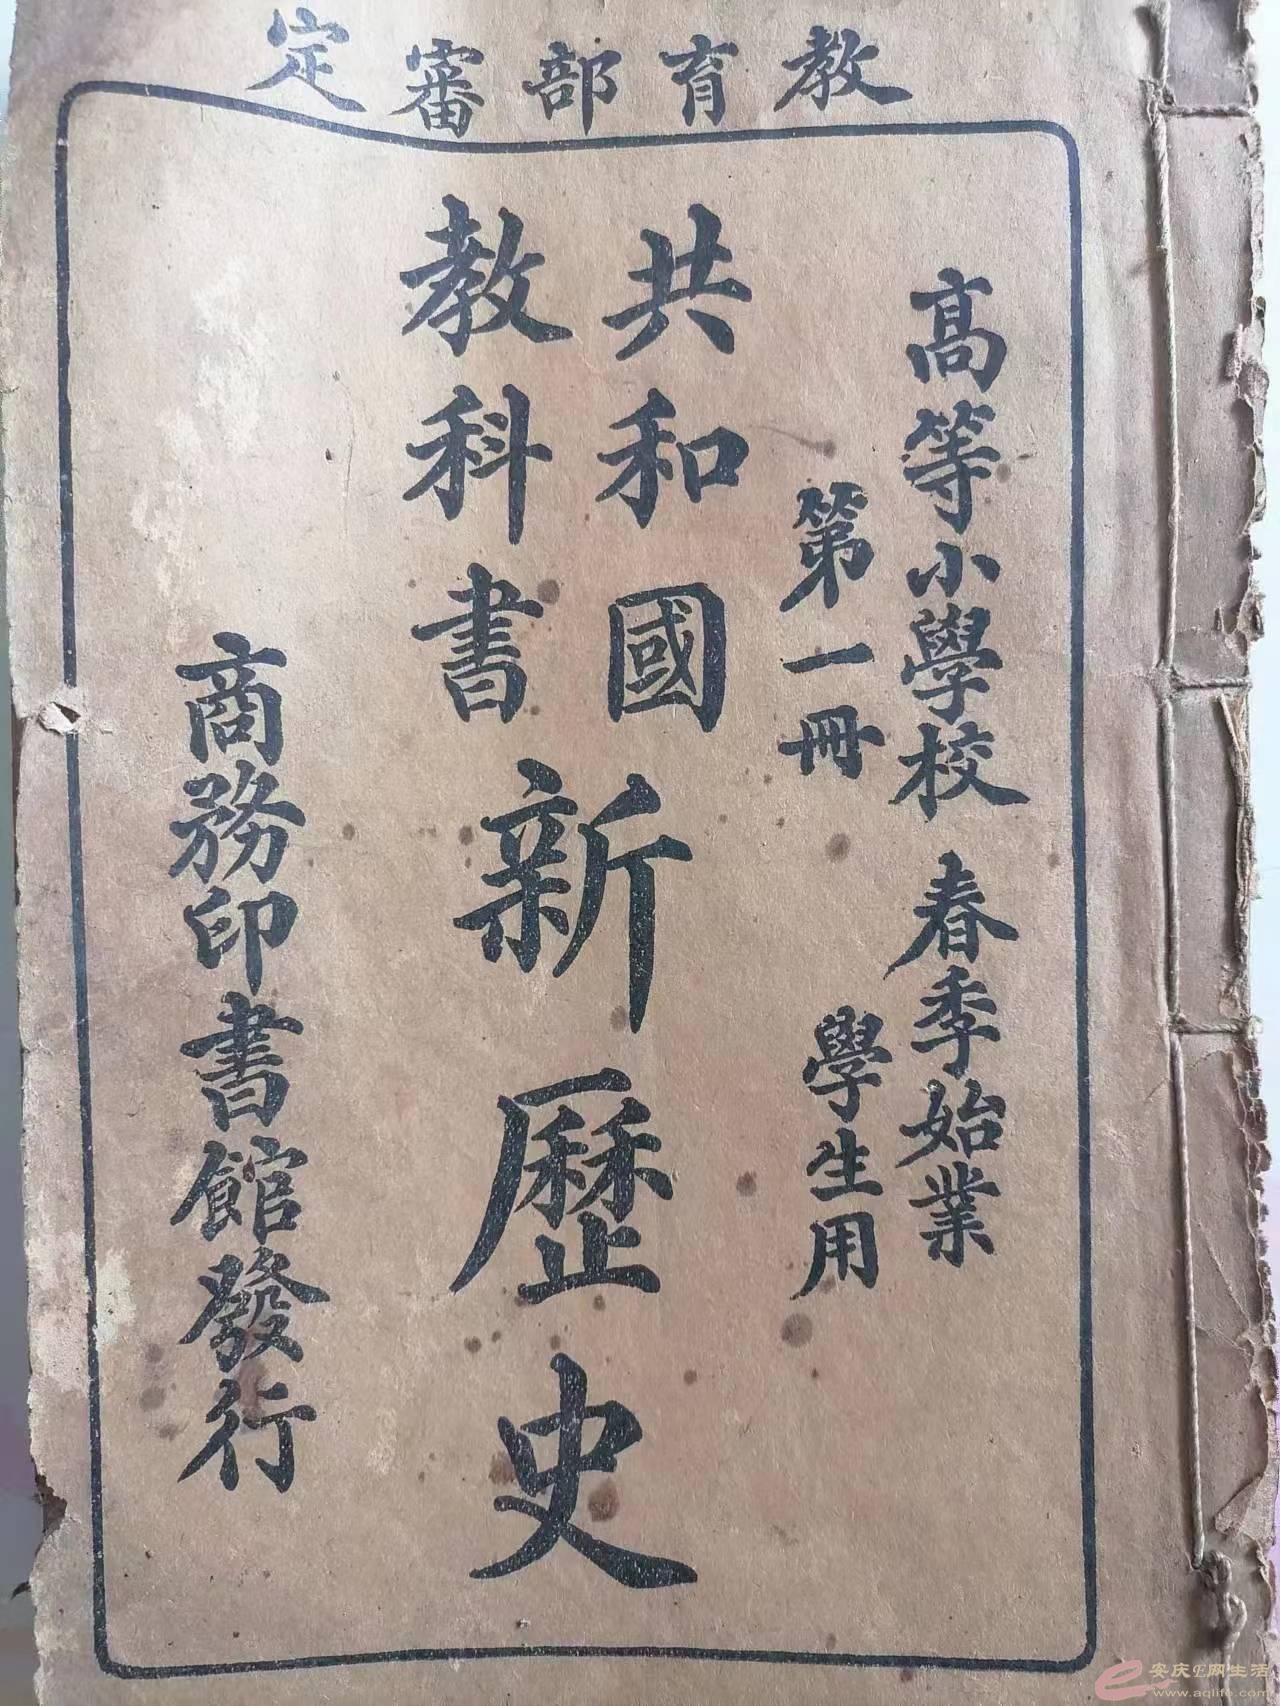 教育部審定
高等小學校 春季始業
第一冊 學生用
共和國
教科書
新歷史
商務印書館發行
安庆E网生活
www.aqlife.com